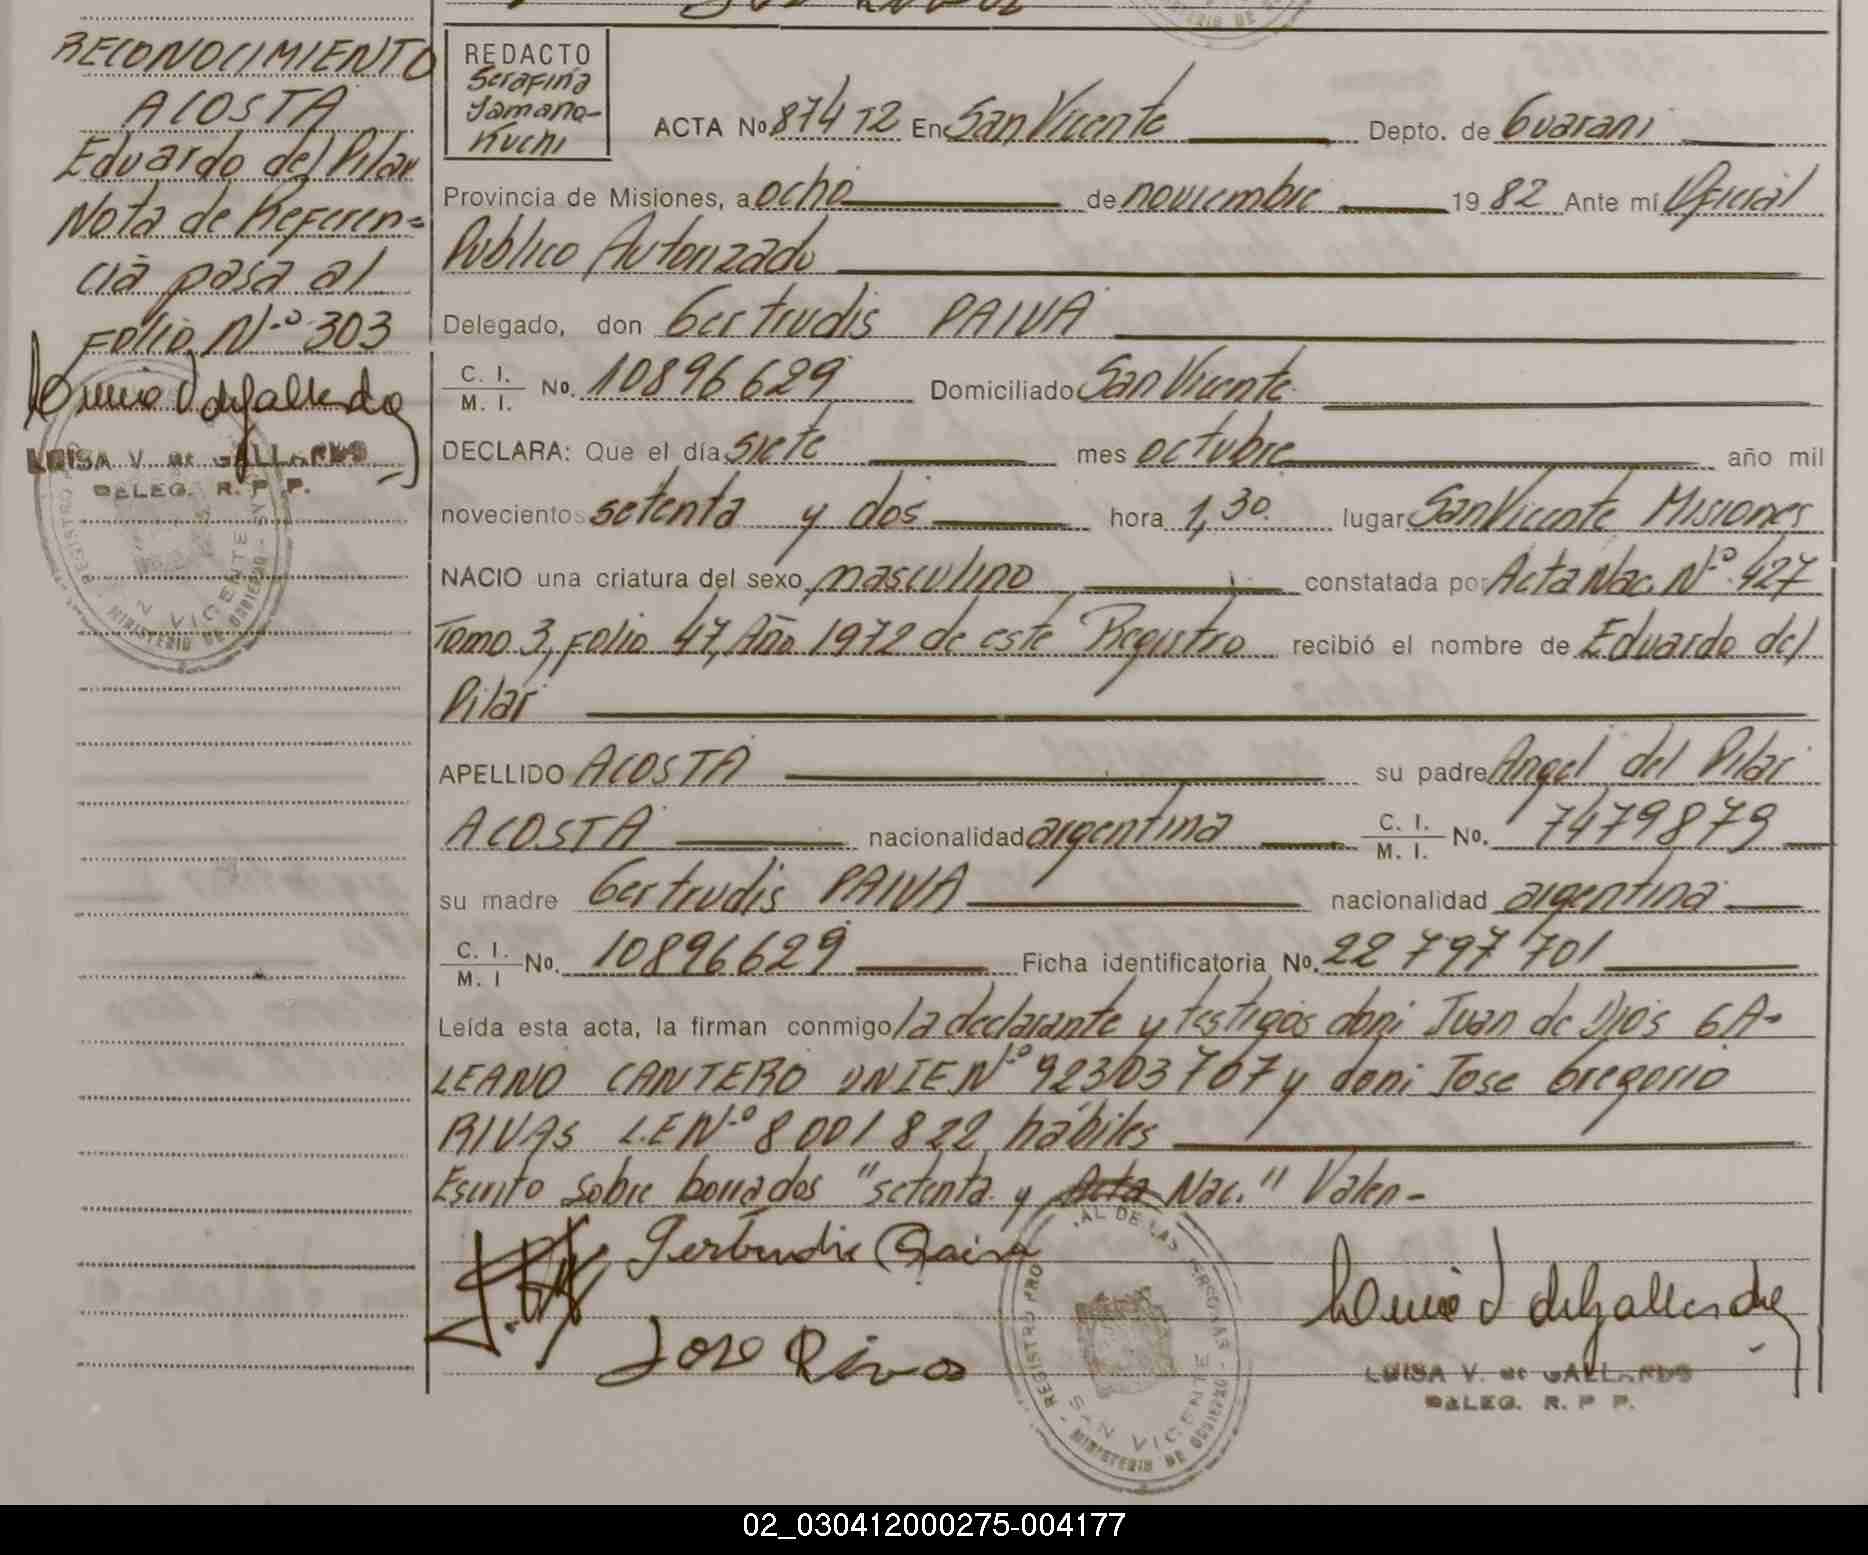 RECONOCIMIENTO
ACOSTA
Eduardo del Pilar
Nota de Referen=
cia pasa al
Folio N.º 303
LUISA V. de GALLARDO
DELEG. R. P. P.
REDACTO
Serafina
Yamano-
Kuchi
ACTA No 874 T2 En San Vicente Depto. de Guarani
Provincia de Misiones, a ocho de noviembre 19 82 Ante mí Oficial
Publico Autorizado
Delegado, don Gertrudis PAIVA
C. I. / M. I. No. 10896629 Domiciliado San Vicente
DECLARA: Que el día siete mes octubre año mil
novecientos setenta y dos hora 1,30 lugar San Vicente Misiones
NACIO una criatura del sexo masculino constatada por Acta Nac. N.º 427
Tomo 3, Folio 47, Año 1972 de este Registro recibió el nombre de Eduardo del
Pilar
APELLIDO ACOSTA su padre Angel del Pilar
ACOSTA nacionalidad argentina C. I. / M. I. No. 7479879
su madre Gertrudis PAIVA nacionalidad argentina
C. I. / M. I No. 10896629 Ficha identificatoria No. 22 797 701
Leída esta acta, la firman conmigo la declarante y testigos doni Juan de Dios GA-
LEANO CANTERO DNIE N.º 92303767 y doni Jose Gregorio
RIVAS L.E N.º 8001822 hábiles
Escrito sobre borrados "setenta y Acta Nac." Valen-
Gertrudis Paiva
Jose Rivas
REGISTRO PROVINCIAL DE LAS PERSONAS - SAN VICENTE - MINISTERIO DE GOBIERNO
LUISA V. de GALLARDO
DELEG. R. P P.
02_030412000275-004177